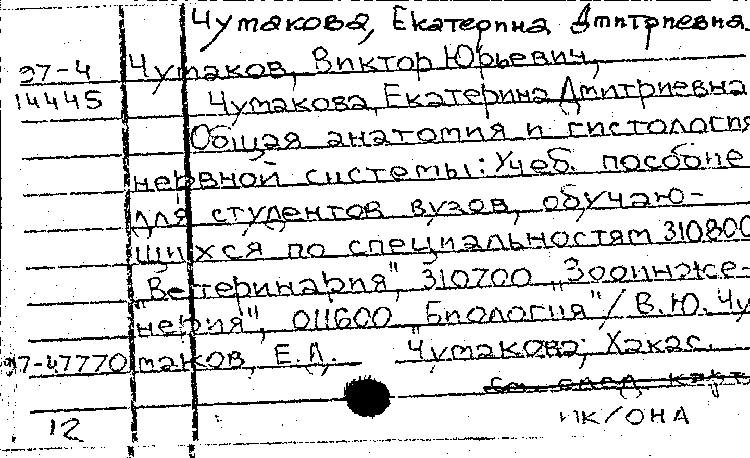 Чумакова, Екатерина Дмитриевна.
97-4 Чумаков, Виктор Юрьевич,
14445 Чумакова, Екатерина Дмитриевна
Общая анатомия и гистология
нервной системы: Учеб. пособие
для студентов вузов, обучаю-
щихся по специальностям 310800
"Ветеринария", 310700 "Зооинже-
нерия", 011600 "Биология" / В.Ю. Чу
97-47770 маков, Е.Д. Чумакова; Хакас.
См. след. карт
12 ПК/ОНА